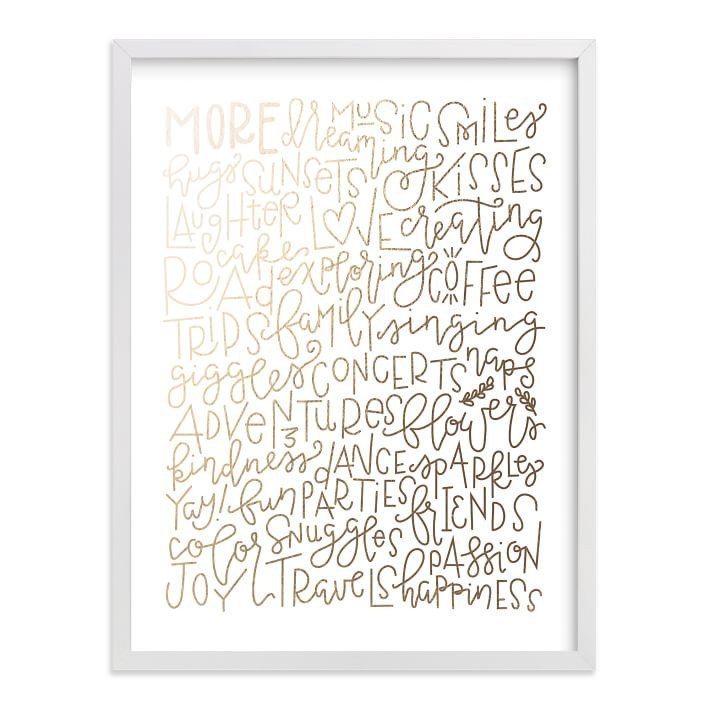 MORE dreaming MUSIC SMILES
hugs SUNSETS KISSES
LAUGHTER LOVE creating
cake
ROAD exploring COFFEE
TRIPS family singing
giggles CONCERTS naps
ADVENTURES flowers
kindness DANCE SPARKLES
YAY! fun PARTIES FRIENDS
color SNUGGLES PASSION
JOY TRAVELS happiness